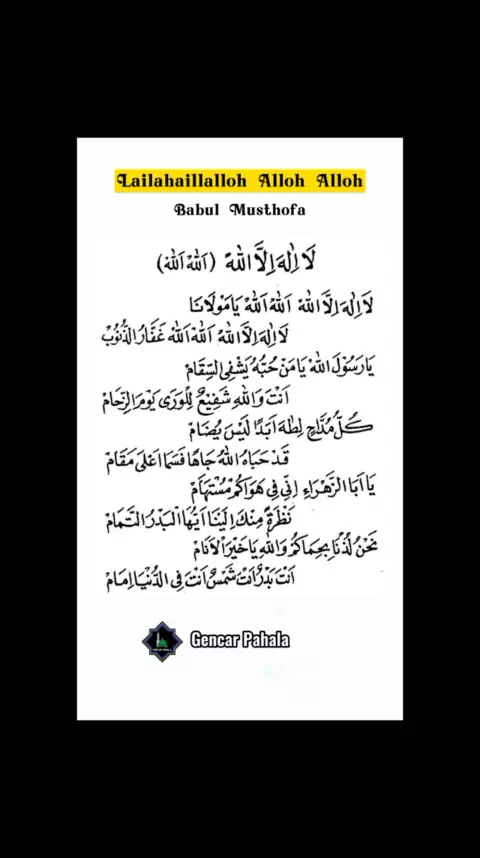 Lailahaillalloh Alloh Alloh
Babul Musthofa
لَا اِلٰهَ اِلَّا اللهُ (اَللهْ اَللهْ)
لَا اِلٰهَ اِلَّا اللهُ اَللهُ اَللهْ يَا مَوْلَانَا
لَا اِلٰهَ اِلَّا اللهُ اَللهُ اَللهُ غَفَّارُ الذُّنُوْبْ
يَا رَسُوْلَ اللهْ يَا مَنْ حُبُّهُ يَشْفِى السِّقَامْ
اَنْتَ وَاللهِ شَفِيْعٌ لِلْوَرَى يَوْمَ الزِّحَامْ
كُلُّ مُدَّاحٍ لِطٰهَ اَبَدًا لَيْسَ يُضَامْ
قَدْ حَبَاهُ اللهُ جَاهًا فَسَمَا اَعْلَى مَقَامْ
يَا اَبَا الزَّهْرَاءِ اِنِّى فِى هَوَاكُمْ مُسْتَهَامْ
نَظْرَةً مِنْكَ اِلَيْنَا اَيُّهَا الْبَدْرُ التَّمَامْ
نَحْنُ لُذْنَا بِحِمَاكُمْ وَاللهِ يَا خَيْرَ الْاَنَامْ
اَنْتَ بَدْرٌ اَنْتَ شَمْسٌ اَنْتَ فِى الدُّنْيَا اِمَامْ
Gencar Pahala